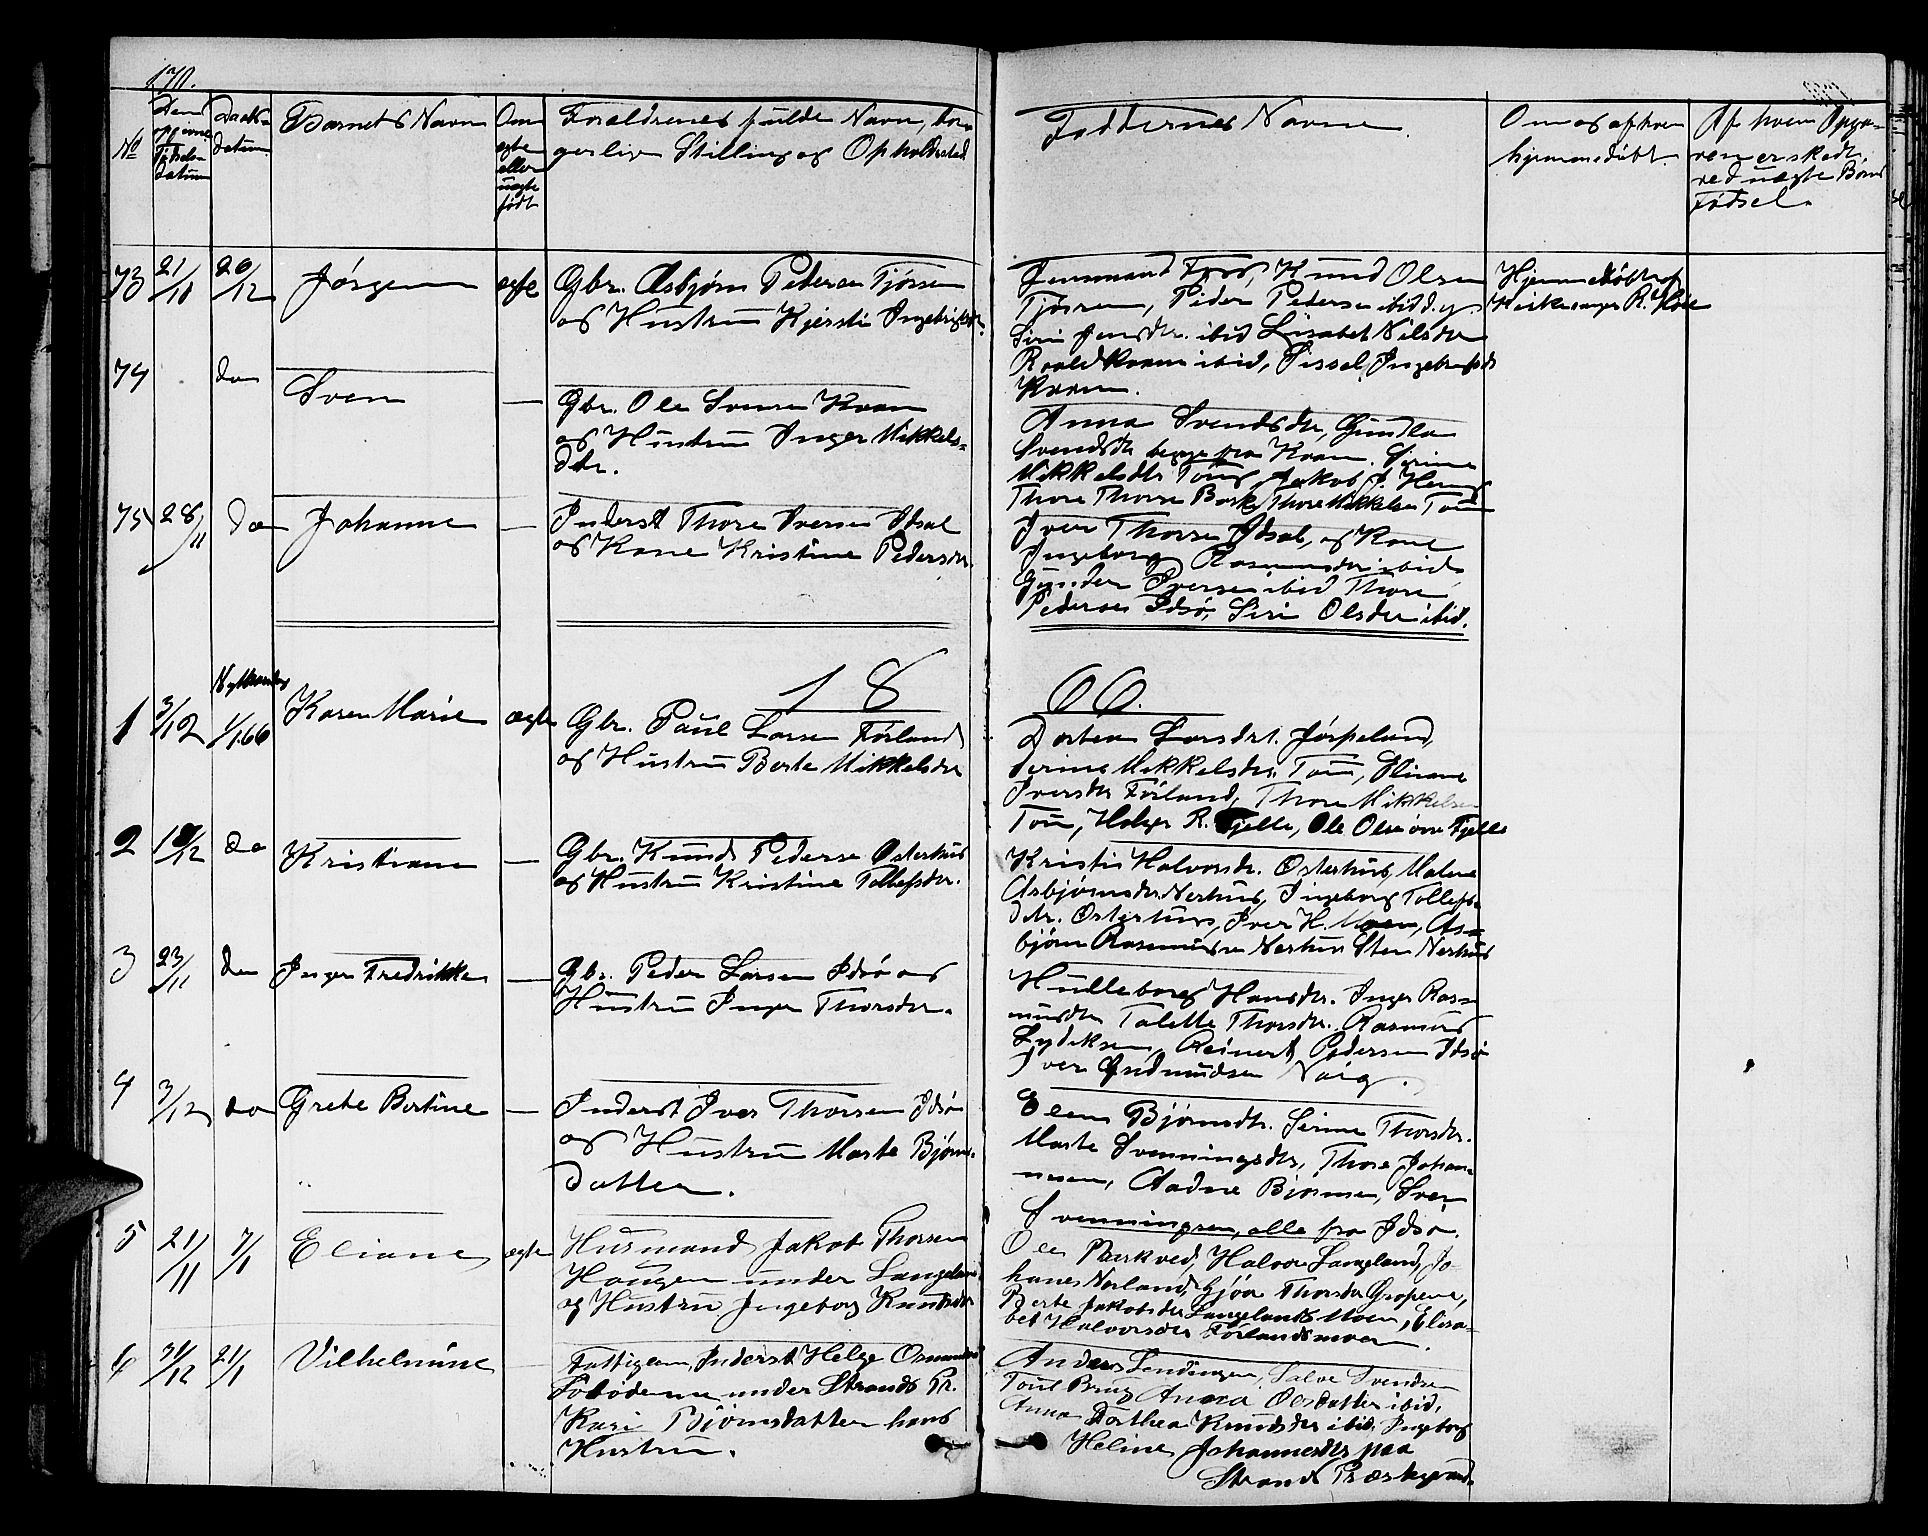 170.
No
Dens
Fødsels-
Datum
Daabs-
datum
Barnets Navn
Om
ægte
eller
uægte
født
Forældrenes fulde Navn, bor-
gerlige Stilling og Opholdssted
Faddernes Navne.
Om og af hvem
hjemmedøbt
Af hvem Anga-
ven er skedt,
ved uægte Børns
Fødsel.
73 21/11 26/12 Jørgen ægte
Gbr. Asbjørn Pedersen Tjøsen
og Hustru Kjersti Ingebrigtsdr.
Knud Olsen
Tjøsen, Peder Pedersen ibid og
Siri Jensdtr. ibid Lisabet Nilsdtr
ibid, Sissel
Kvam.
Hjemmedøbt af
Kirkesanger R.
74 do Sven —
Gbr. Ole Svensen Kvam
og Hustru Inger Mikkels-
dtr.
Anna Svendsdtr, Gundla
Svendsdtr begge fra Kvam, Serine
Mikkelsdtr Tou, Jakob J.
Thore Thorsen Barke, Thore Mikkelsen Tou
75 28/11 do Johanne —
Inderst Thore Iversen Idsal
og Kone Kristine Pedersdtr.
Iver Thorsen Idsal, og Kone
Ingeborg Rasmusdtr ibid
Gunder Iversen ibid Thore
Pedersen Idsø, Siri Olsdtr ibid.
18 66.
1 3/12 Nytaarsdag 1/1 66 Karen Marie ægte
Gbr. Paul Larsen Førland
og Hustru Berte Mikkelsdtr
Dortea Larsdtr. Jørpeland,
Serine Mikkelsdtr. Tou, Eliane
Iversdtr Førland, Thore Mikkelsen
Tou, Helge R. Fjelle, Ole Olsen øvre Fjelle
2 10/12 do Kristiane —
Gbr. Knud Pedersen Østerhus
og Hustru Kristine Tollefsdtr.
Kristi Halvorsdr. Østerhus, Malene
Asbjørnsdtr. Nerhus, Ingeborg Tollefs-
dtr. Østerhus, Iver H. Moen, As-
bjørn Rasmussen Nerhus Sten Nerhus
3 23/11 do Inger Fredrikke —
Gbr. Peder Larsen Idsø og
Hustru Inger Thorsdtr.
Hulleborg Hansdtr. Inger Ras-
musdtr Talette Thorsdtr. Rasmus
Lydeksen, Reinert Pedersen Idsø
Iver Gudmundsen Vaig.
4 3/12 do Grete Bertine —
Inderst Iver Thorsen Idsø
og Hustru Marte Bjørns-
datter.
Elen Bjørnsdtr. Serine Thorsdtr.
Marte Svenningsdtr, Thore Johan-
nesen, Aadne Bjørnsen, Sven
Svenningsen, alle fra Idsø.
5 21/11 7/1 Eliane ægte
Husmand Jakob Thorsen
Haugen under Langeland
og Hustru Ingeborg Knudsdtr
Ole Barkved, Halvor Langeland, Jo-
hanes Norland, Gjøa Thorsdtr
Berte Jakobsdtr Langelands Moen, Elisa-
bet Halvorsdtr Førlandsmoen.
6 31/12 21/1 Vilhelmine —
Fattiglem, Inderst Helge Osmundsen
under Strands Pr.
Kari Bjørnsdatter hans
Hustru.
Anders Salve Svendsen
Tous Brug Anna Olsdatter ibid,
Anna Dorthea Knudsdtr ibid, Ingeborg
Heline Johannesdtr paa
Strands Præstegaard.